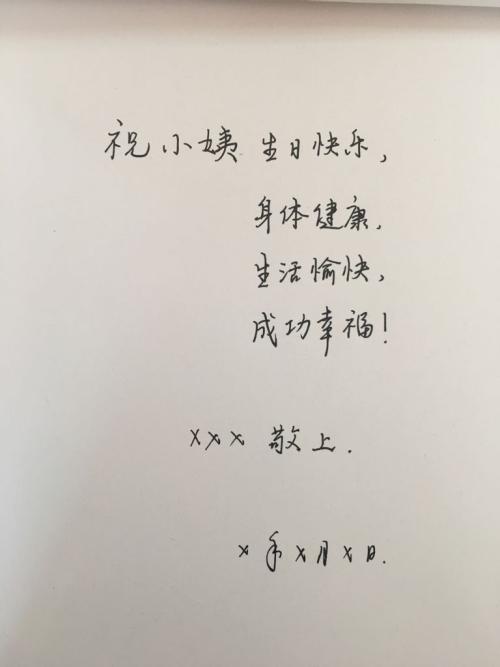 祝小姨 生日快乐,
身体健康,
生活愉快,
成功幸福!
xxx 敬上.
x年x月x日.